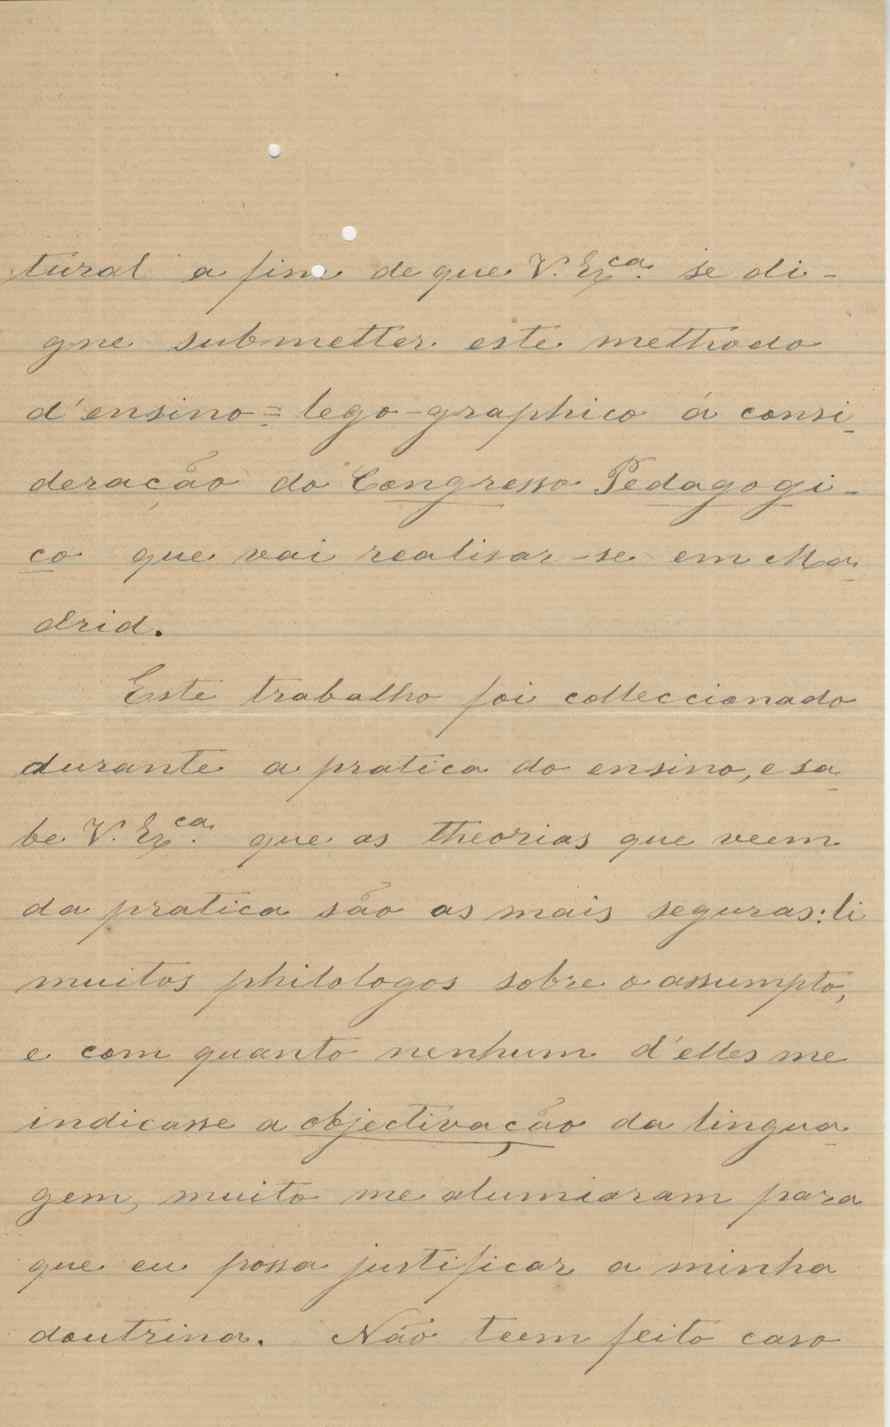 tural a fim de que V. Exca. se di-
gne submetter este methodo
d'ensino = lego-graphico á consi-
deração do Congresso Pedagogi-
co que vai realisar-se em Ma-
drid.
Este trabalho foi colleccionado
durante a pratica do ensino, e sa-
be V. Exca. que as theorias que veem
da pratica são as mais seguras: li
muitos philologos sobre o assumpto,
e com quanto nenhum d'elles me
indicasse a objectivação da lingua-
gem, muito me alumiaram para
que eu possa justificar a minha
doutrina. Não teem feito caso